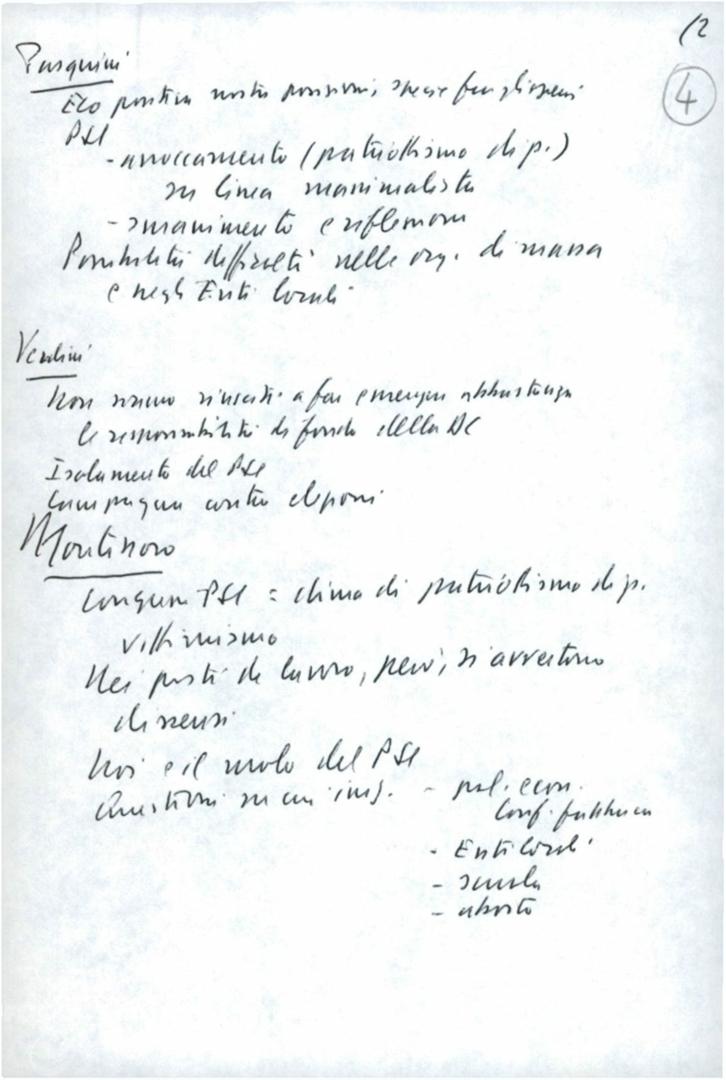 12
4
Pasquini
Eco positiva nostre posizioni, specie fra gli operai
PSI
- arroccamento (patriottismo di p.)
su linea massimalista
- smarrimento e riflessione
Possibilità difficoltà nelle org. di massa
e negli Enti locali
Verdini
Non siamo riusciti a far emergere abbastanza
le responsabilità di fondo della DC
Isolamento del PSI
Campagna contro elezioni
Montinoro
PSI = clima di patriottismo di p.
vittimismo
Nei posti di lavoro, però, si avvertono
dissensi
Noi e il ruolo del PSI
Questioni su cui ins. - pol. econ.
Conf. fabbrica
- Enti locali
- scuola
- aborto